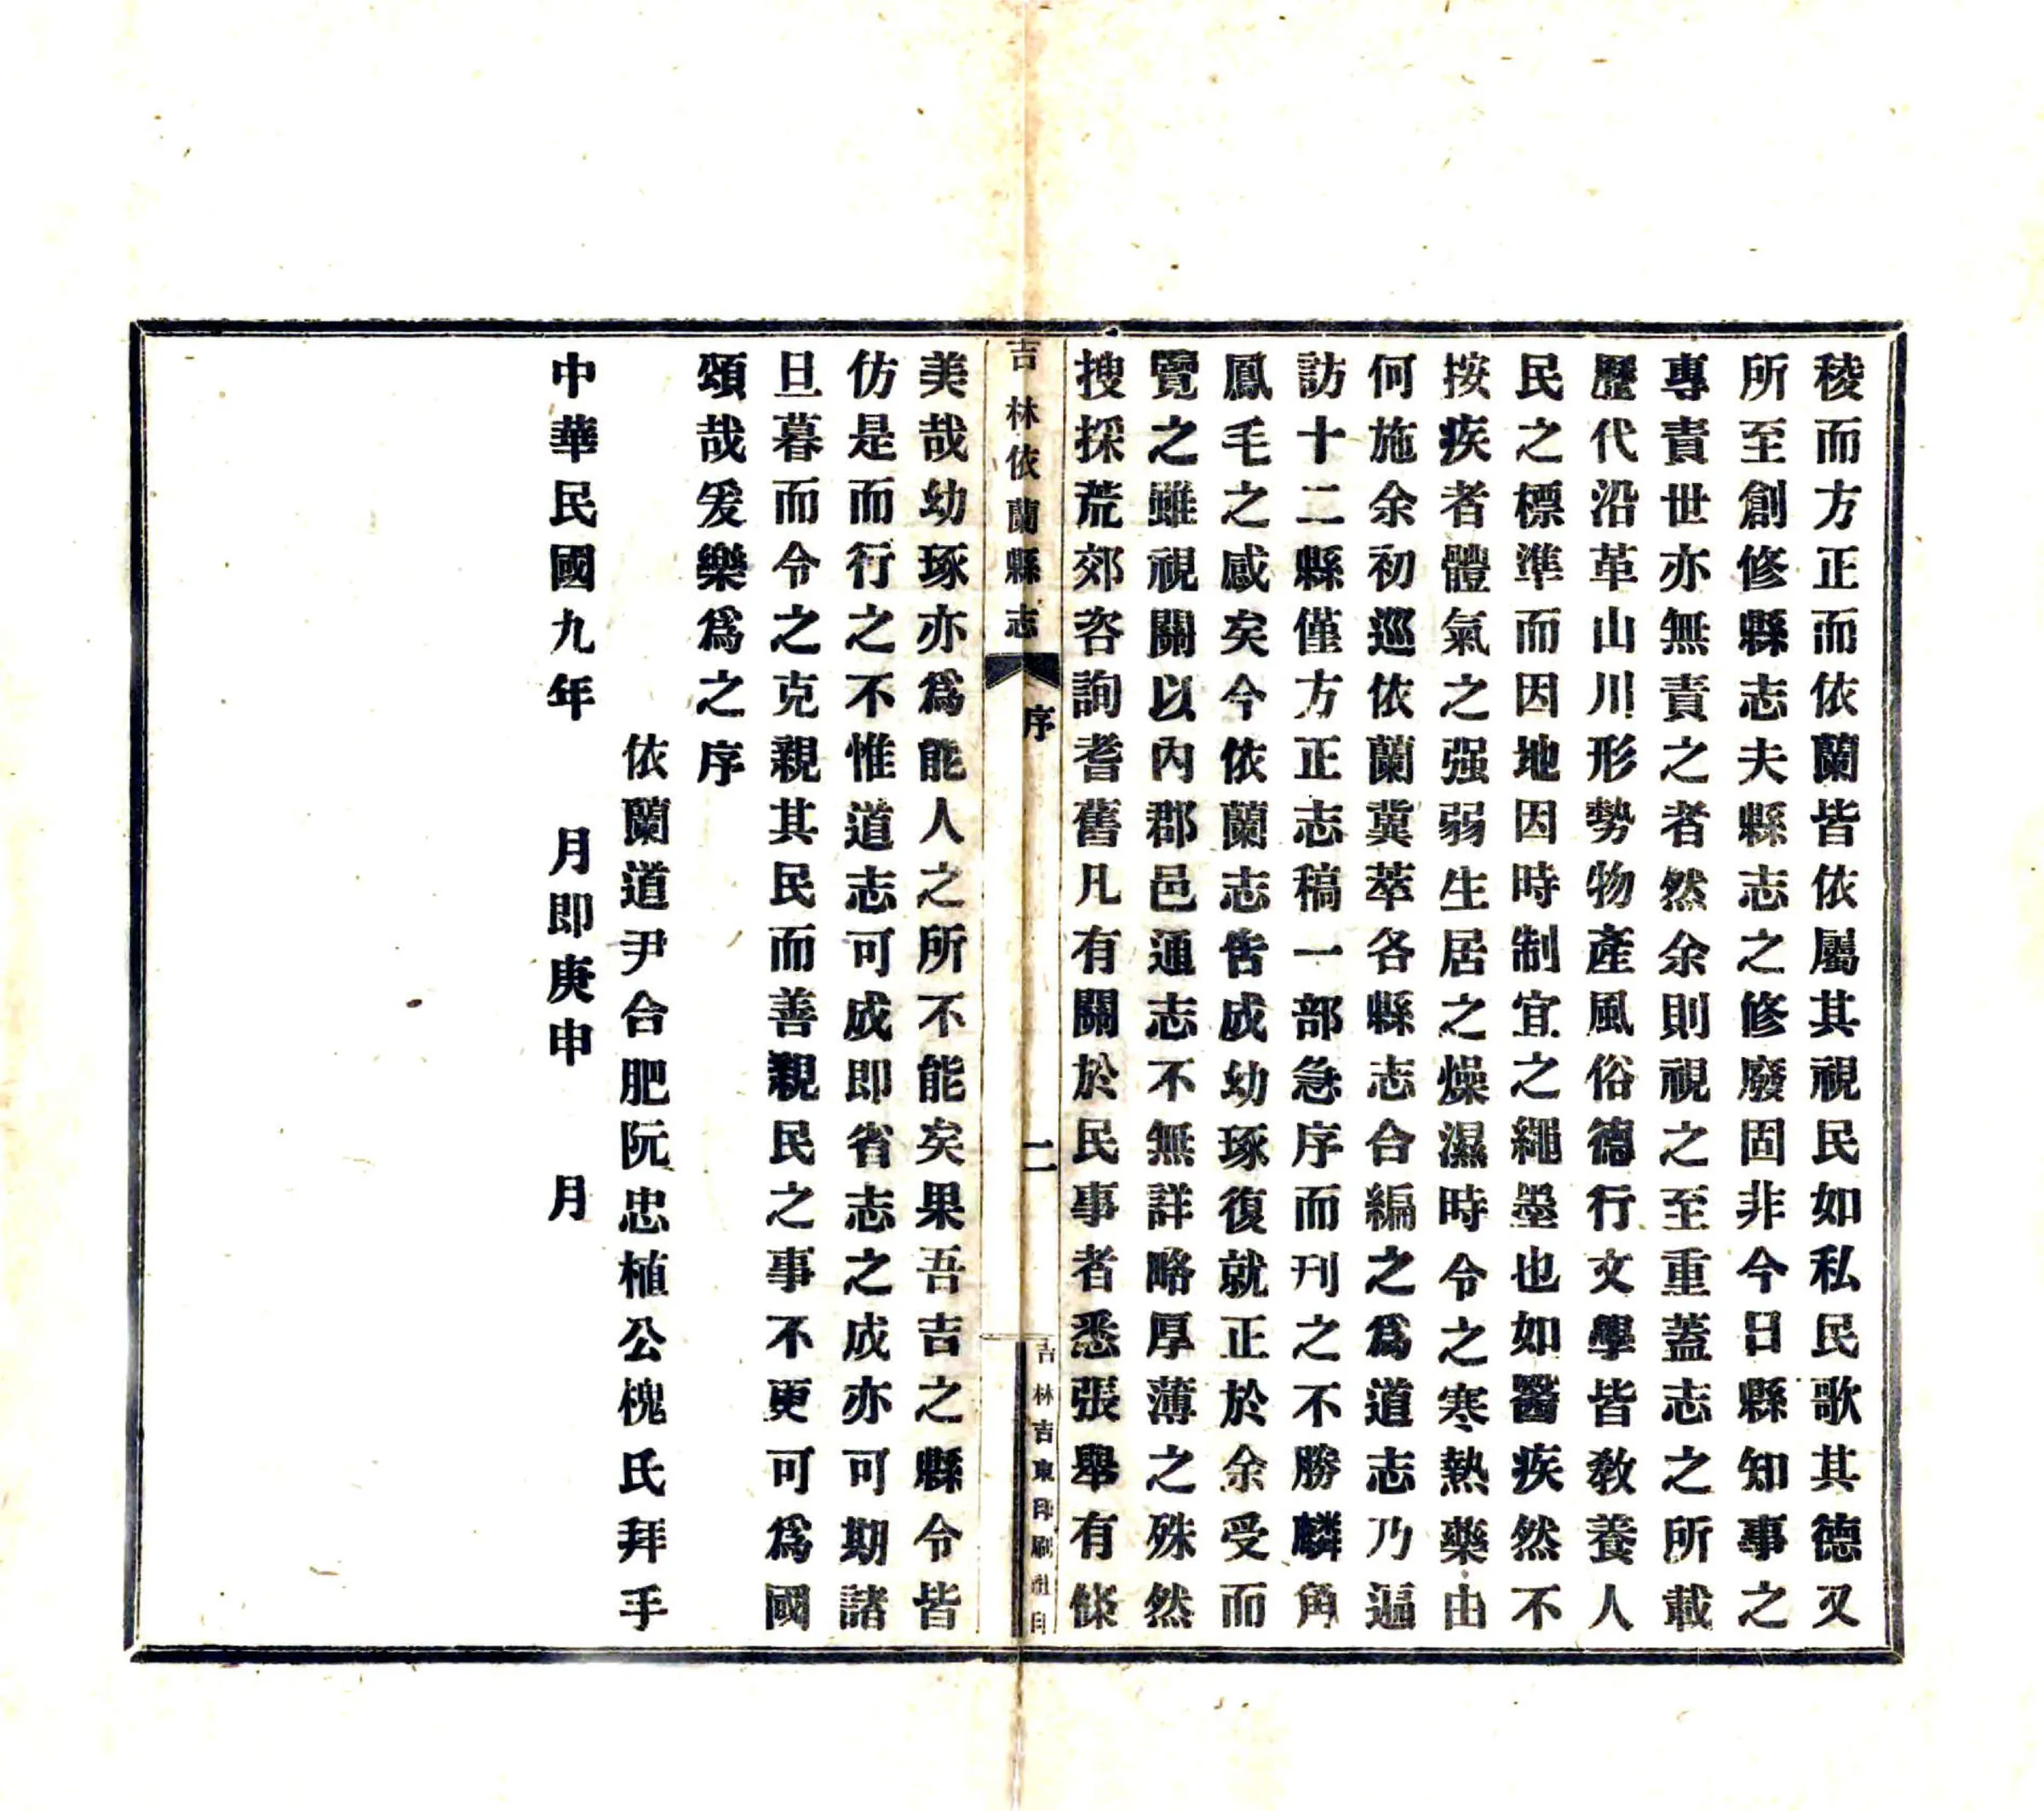 稜而方正而依蘭皆依屬其視民如私民歌其德又
所至創修縣志夫縣志之修廢固非今日縣知事之
專責世亦無責之者然余則視之至重蓋志之所載
歷代沿革山川形勢物產風俗德行文學皆敎養人
民之標準而因地因時制宜之繩墨也如醫疾然不
按疾者體氣之强弱生居之燥濕時令之寒熱藥由
何施余初巡依蘭冀萃各縣志合編之爲道志乃遍
訪十二縣僅方正志稿一部急序而刊之不勝麟角
鳳毛之感矣今依蘭志告成幼琢復就正於余受而
覽之雖視關以內郡邑通志不無詳略厚薄之殊然
搜採荒郊咨詢耆舊凡有關於民事者悉張舉有條
吉林依蘭縣志
序
二
吉林吉東印刷社印
美哉幼琢亦爲能人之所不能矣果吾吉之縣令皆
仿是而行之不惟道志可成即省志之成亦可期諸
旦暮而令之克親其民而善親民之事不更可爲國
頌哉爰樂爲之序
依蘭道尹合肥阮忠植公槐氏拜手
中華民國九年　月即庚申　月